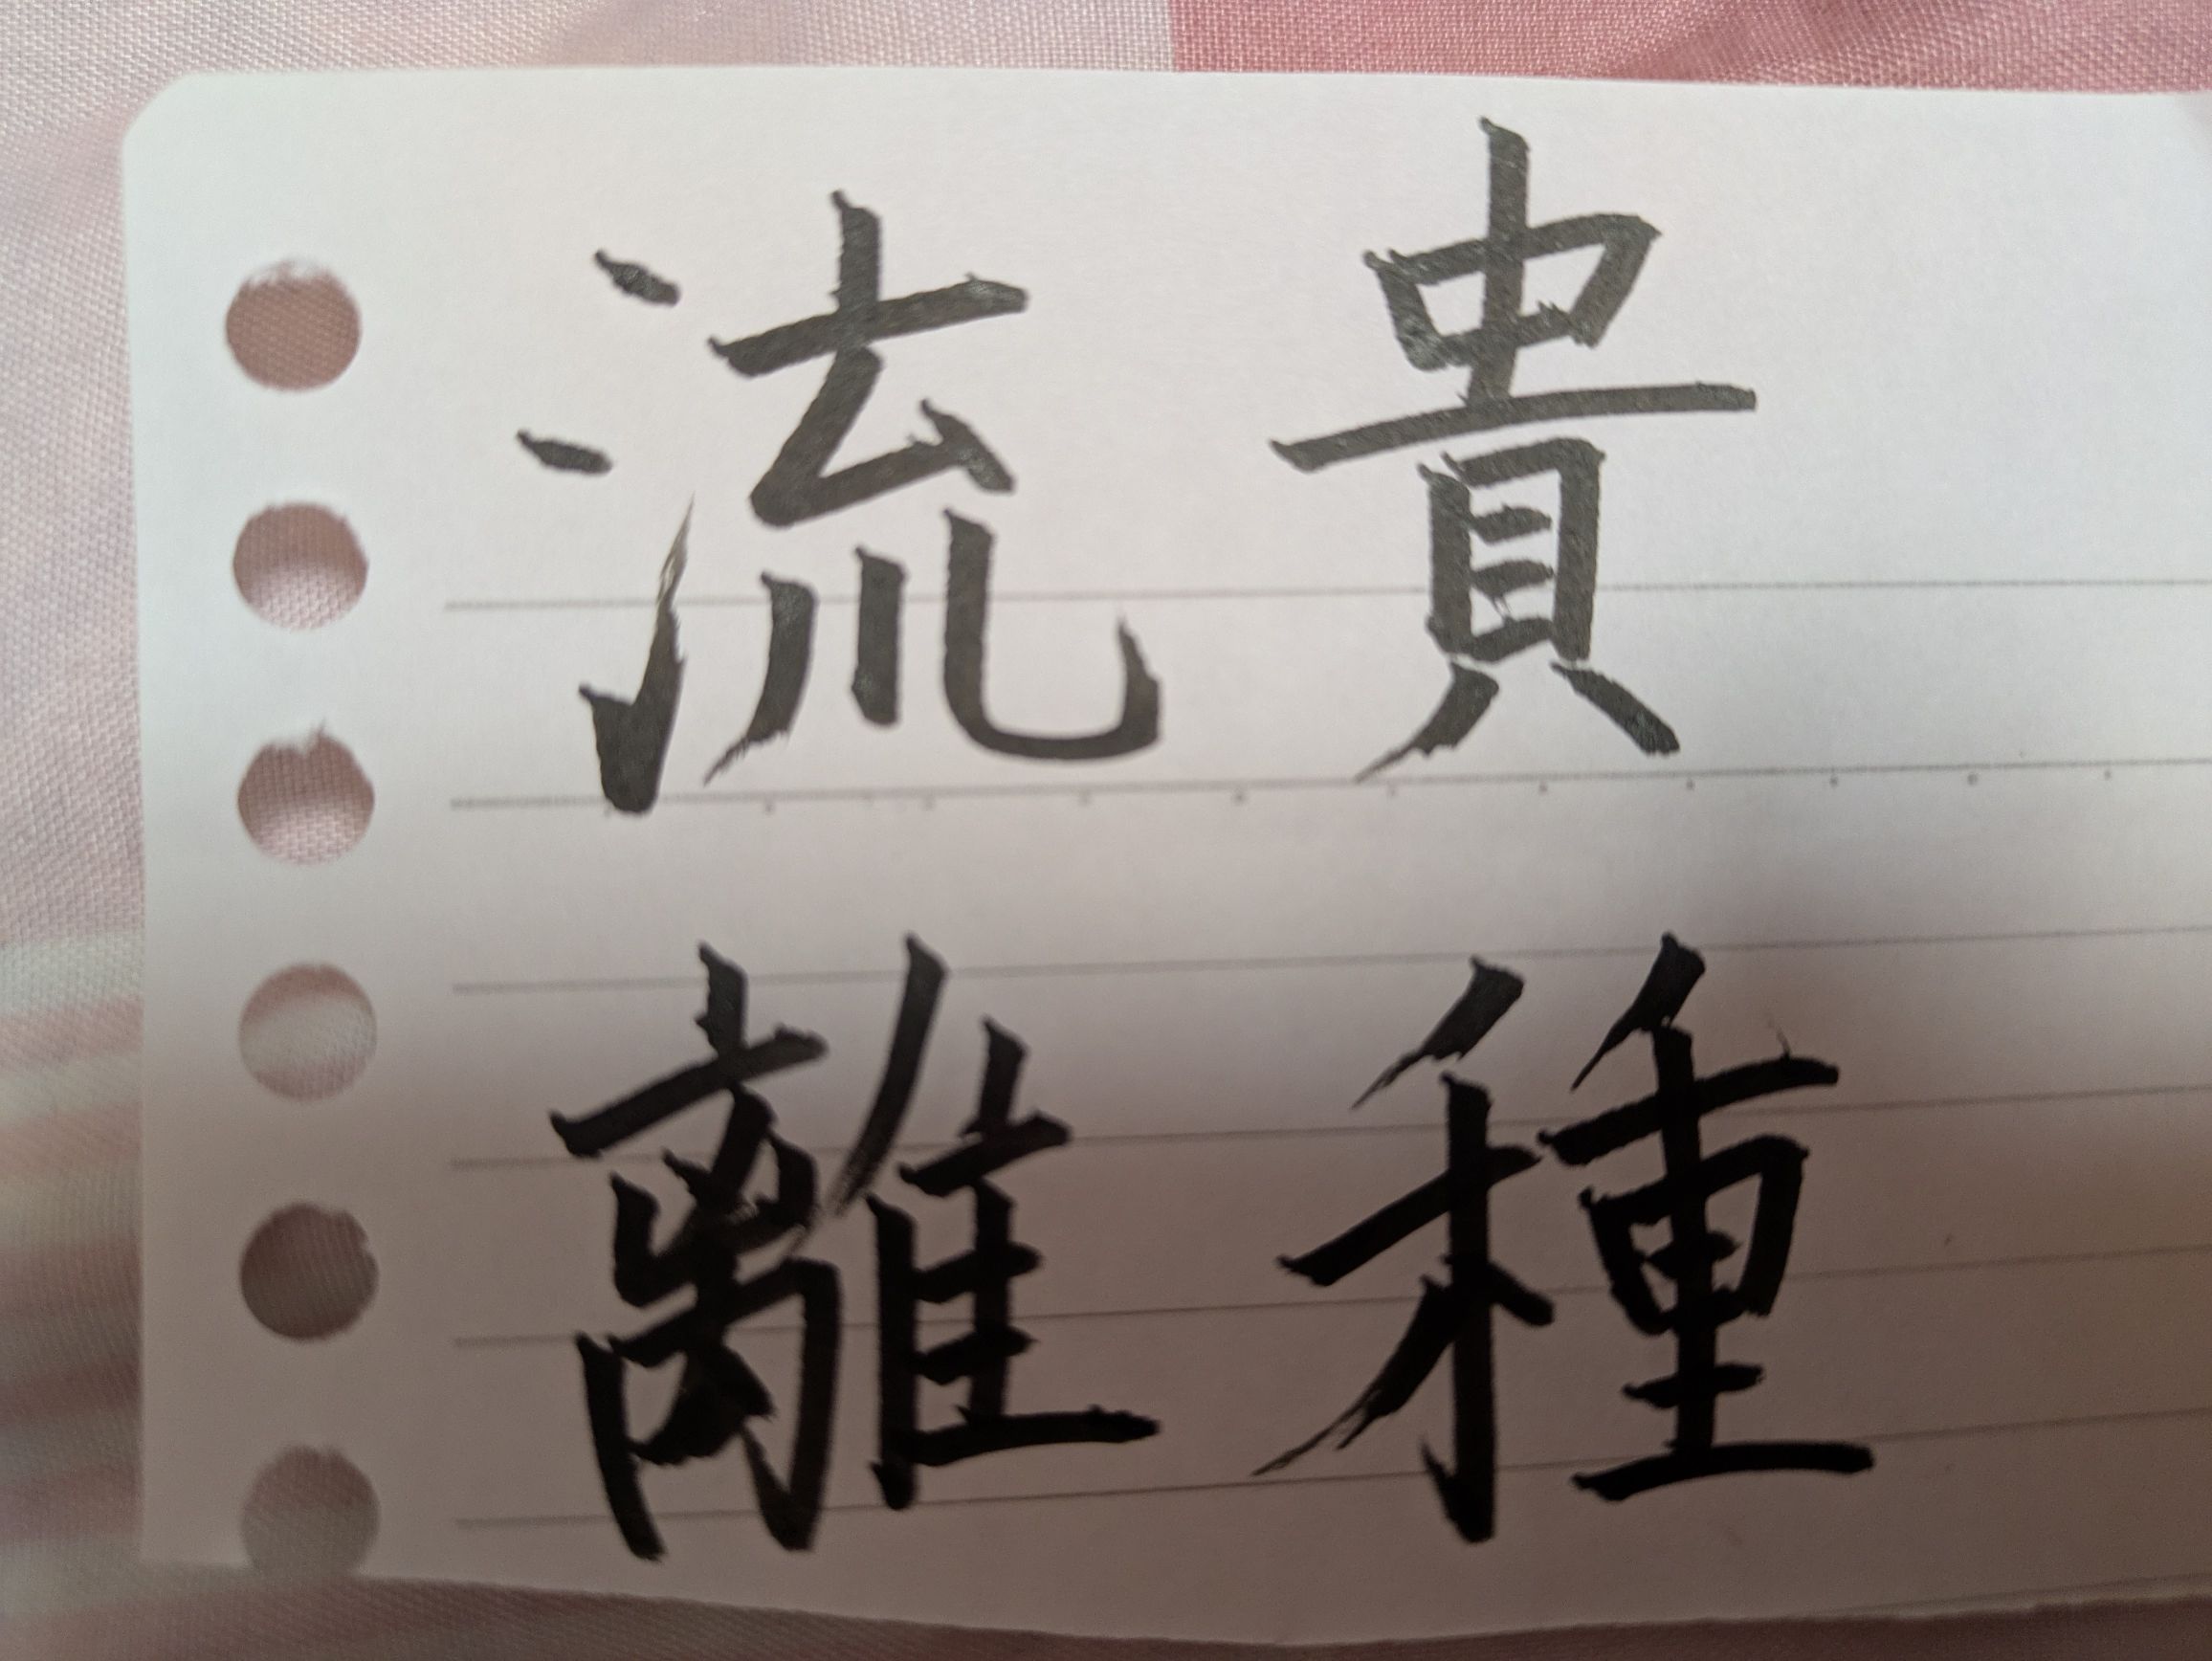 貴種
流離